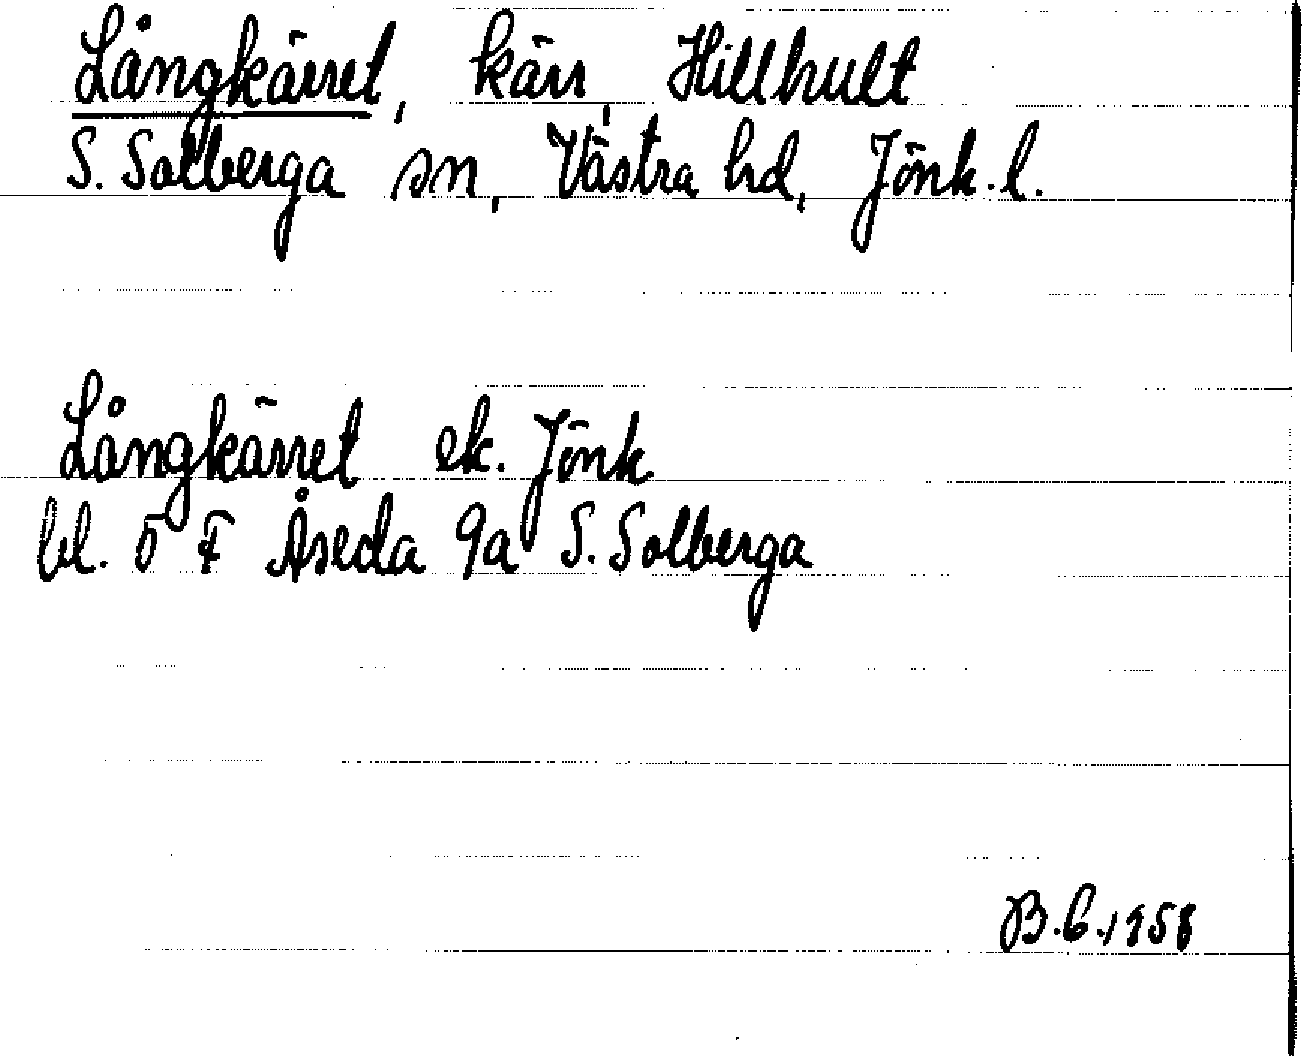 Långkärret, kärr, Hillhult
S. Solberga sn, Västra hd, Jönk. l.
Långkärret ek. Jönk
bl. 5 F Åseda 9a S. Solberga
B.C. 1958